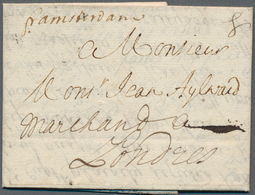 p amsterdam
a Monsieur
Mons.r Jean Aylward
Marchand a
Londres